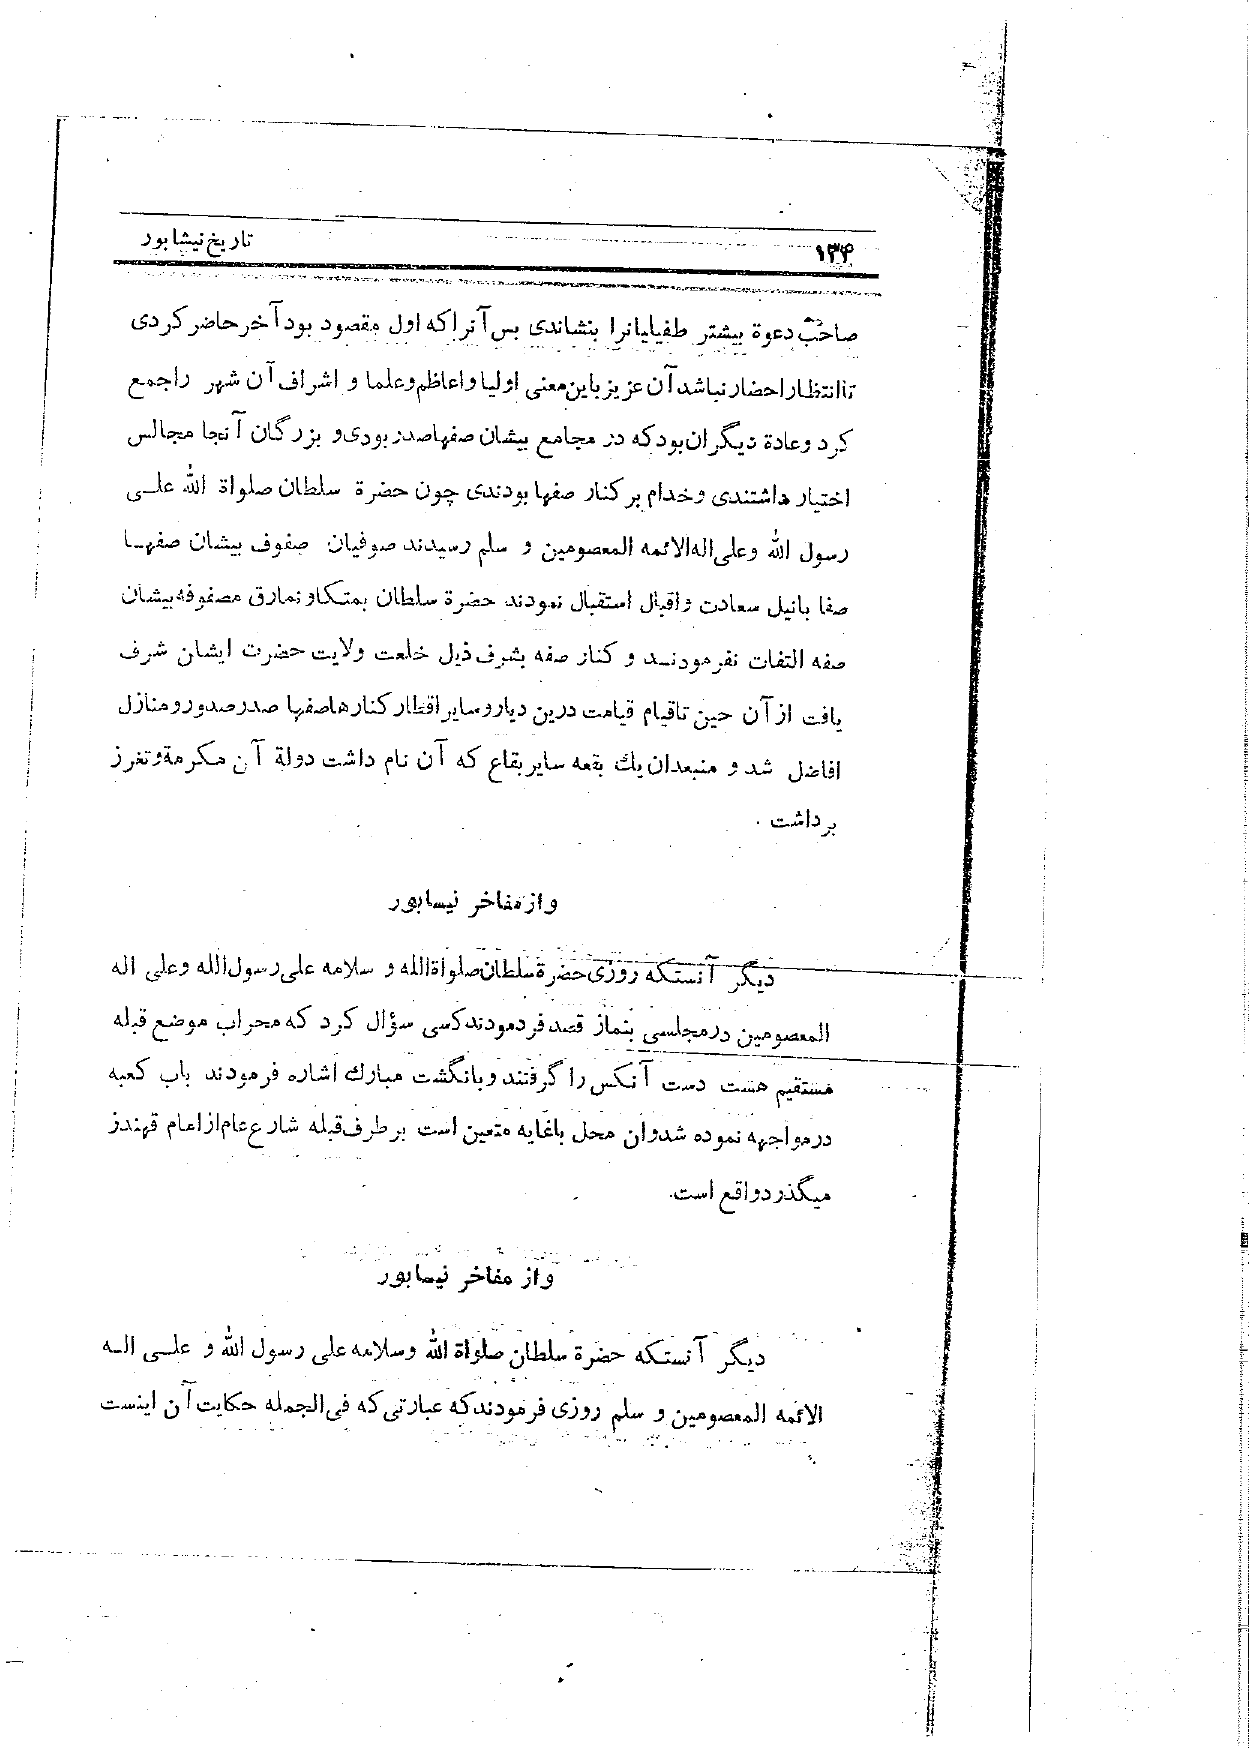 ۱۳۴
تاریخ نیشابور
صاحب دعوة بیشتر طفیلیانرا بنشاندی بس آنرا که اول مقصود بود آخر حاضر کردی
تا انتظار احضار نباشد آن عزیز باین معنی اولیا و اعاظم و علما و اشراف آن شهر را جمع
کرد و عادة دیگران بود که در مجامع بیشان صفها صدر بودی و بزرگان آنجا مجالس
اختیار داشتندی و خدام بر کنار صفها بودندی چون حضرة سلطان صلواة الله علی
رسول الله و علی اله الائمه المعصومین و سلم رسیدند صوفیان صفوف بیشان صفها
صفا بانیل سعادت و اقبال استقبال نمودند حضرة سلطان بمتکا و نمارق مصفوفه بیشان
صفه التفات نفرمودند و کنار صفه بشرف ذیل خلعت ولایت حضرت ایشان شرف
یافت از آن حین تا قیام قیامت درین دیار و سایر اقطار کنارها صفها صدر صدور و منازل
افاضل شد و منبعدان یك بقعه سایر بقاع که آن نام داشت دولة آن مکرمة و تغرز
برداشت .
و از مفاخر نیسابور
دیگر آنستکه روزی حضرة سلطان صلواة الله و سلامه علی رسول الله و علی اله
المعصومین در مجلسی بنماز قصد فردمودند کسی سؤال کرد که محراب موضع قبله
مستقیم هست دست آنکس را گرفتند و بانگشت مبارك اشاره فرمودند باب کعبه
در مواجهه نموده شد و ان محل باغایه متعین است بر طرف قبله شارع عام از امام قهندز
میگذرد واقع است.
و از مفاخر نیسابور
دیگر آنستکه حضرة سلطان صلواة الله و سلامه علی رسول الله و علی اله
الائمه المعصومین و سلم روزی فرمودند که عبارتی که فی الجمله حکایت آن اینست